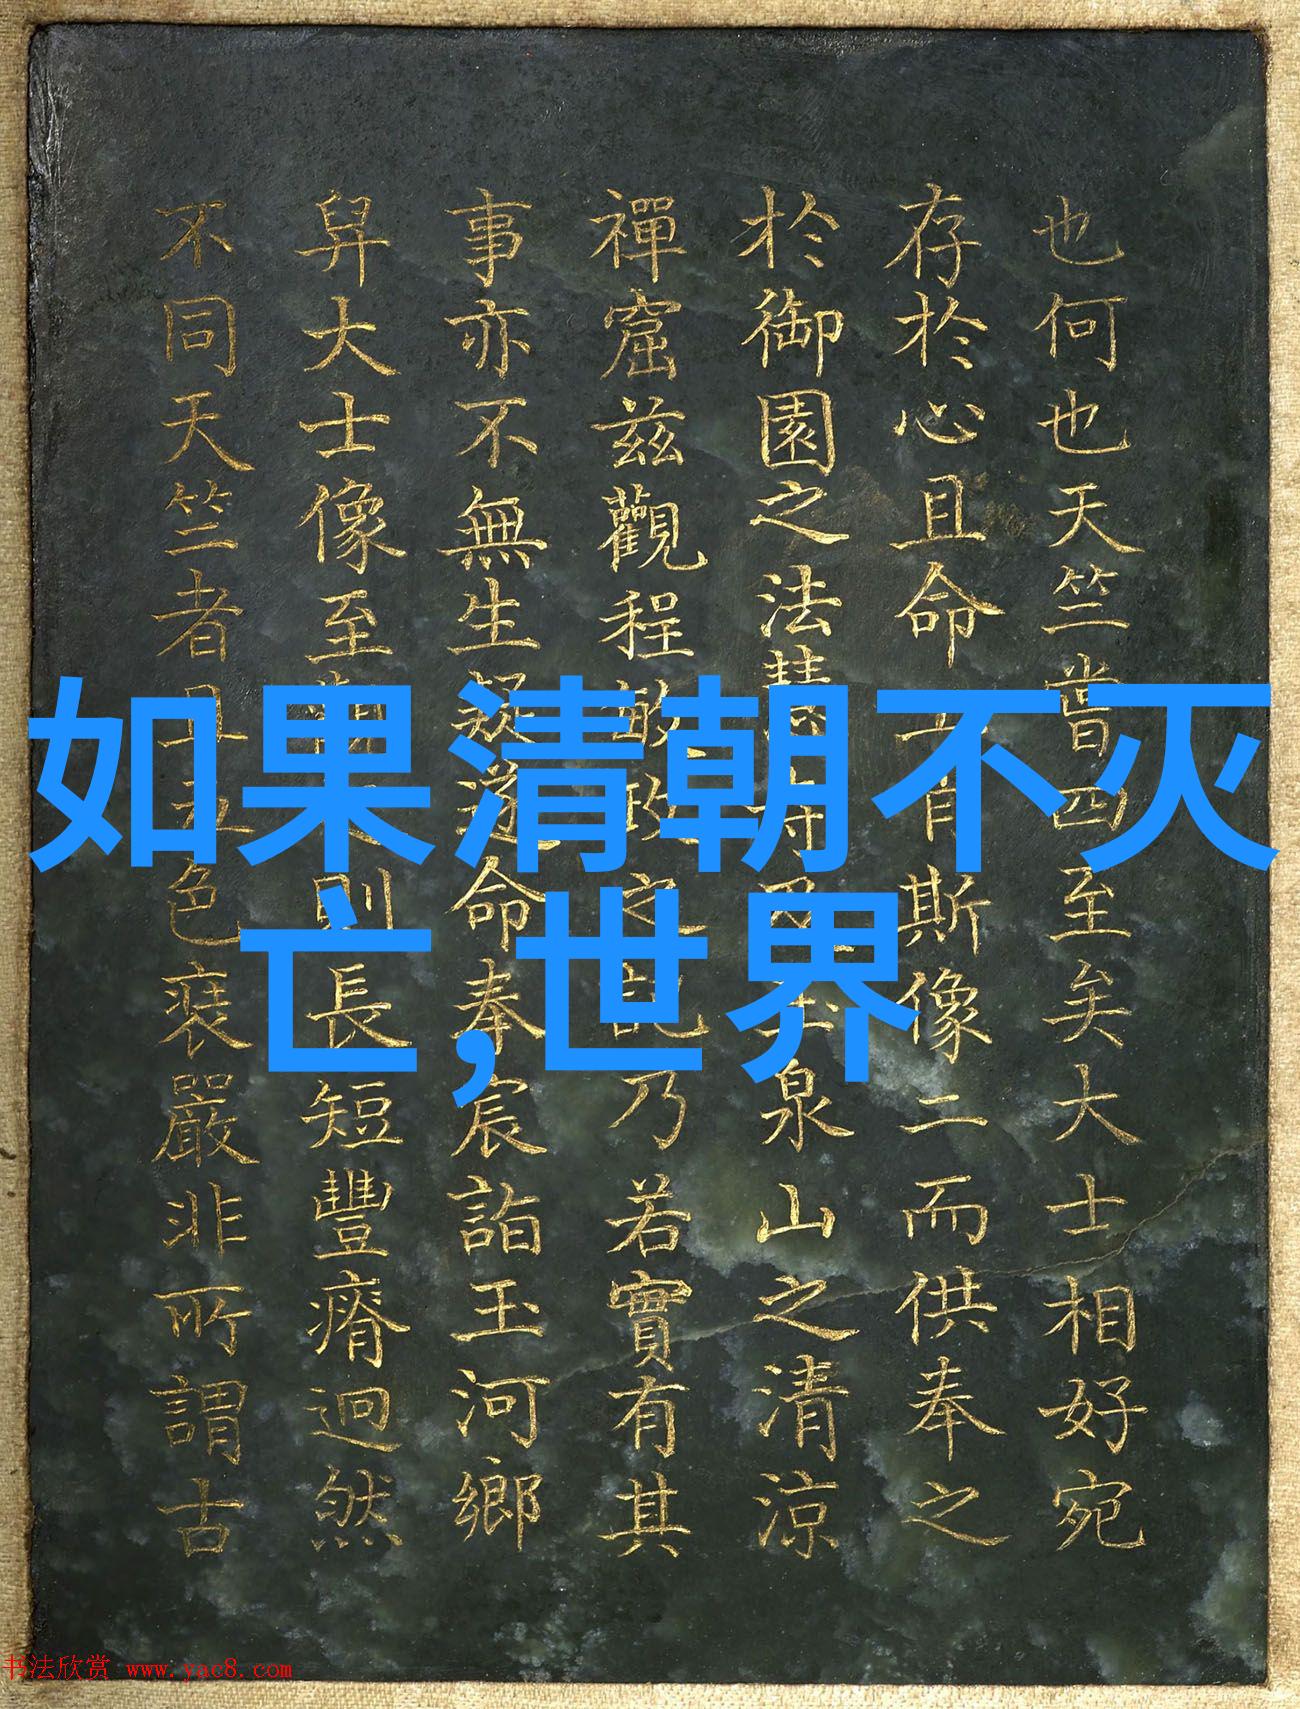 如果清朝不灭
亡,世界
也何也天竺嘗四至矣大士相好宛
存於心且命工肖斯像二而供奉之
於御園之法慧寺及玉泉山之清涼
禪窟兹觀程敏政之記乃若實有其
事亦不無生疑遂命奉宸詣玉河鄉
舁大士像至則長短豐瘠迥然
不同天竺者且五色裝嚴非所謂古
书法欣赏 www.yac8.com